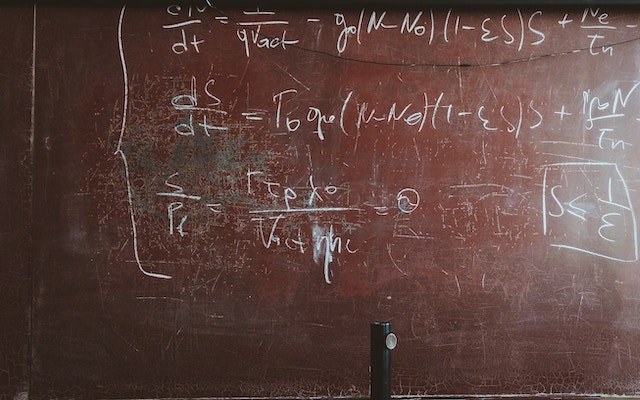 dN/dt = I/qVact - g₀(N-N₀)(1-εS)S + Ne/τn -
dS/dt = Γb g₀(N-N₀)(1-εS)S + N/τn
S/Pf = Γτp λ₀/Vact ηhc = ②
S ≤ 1/ε